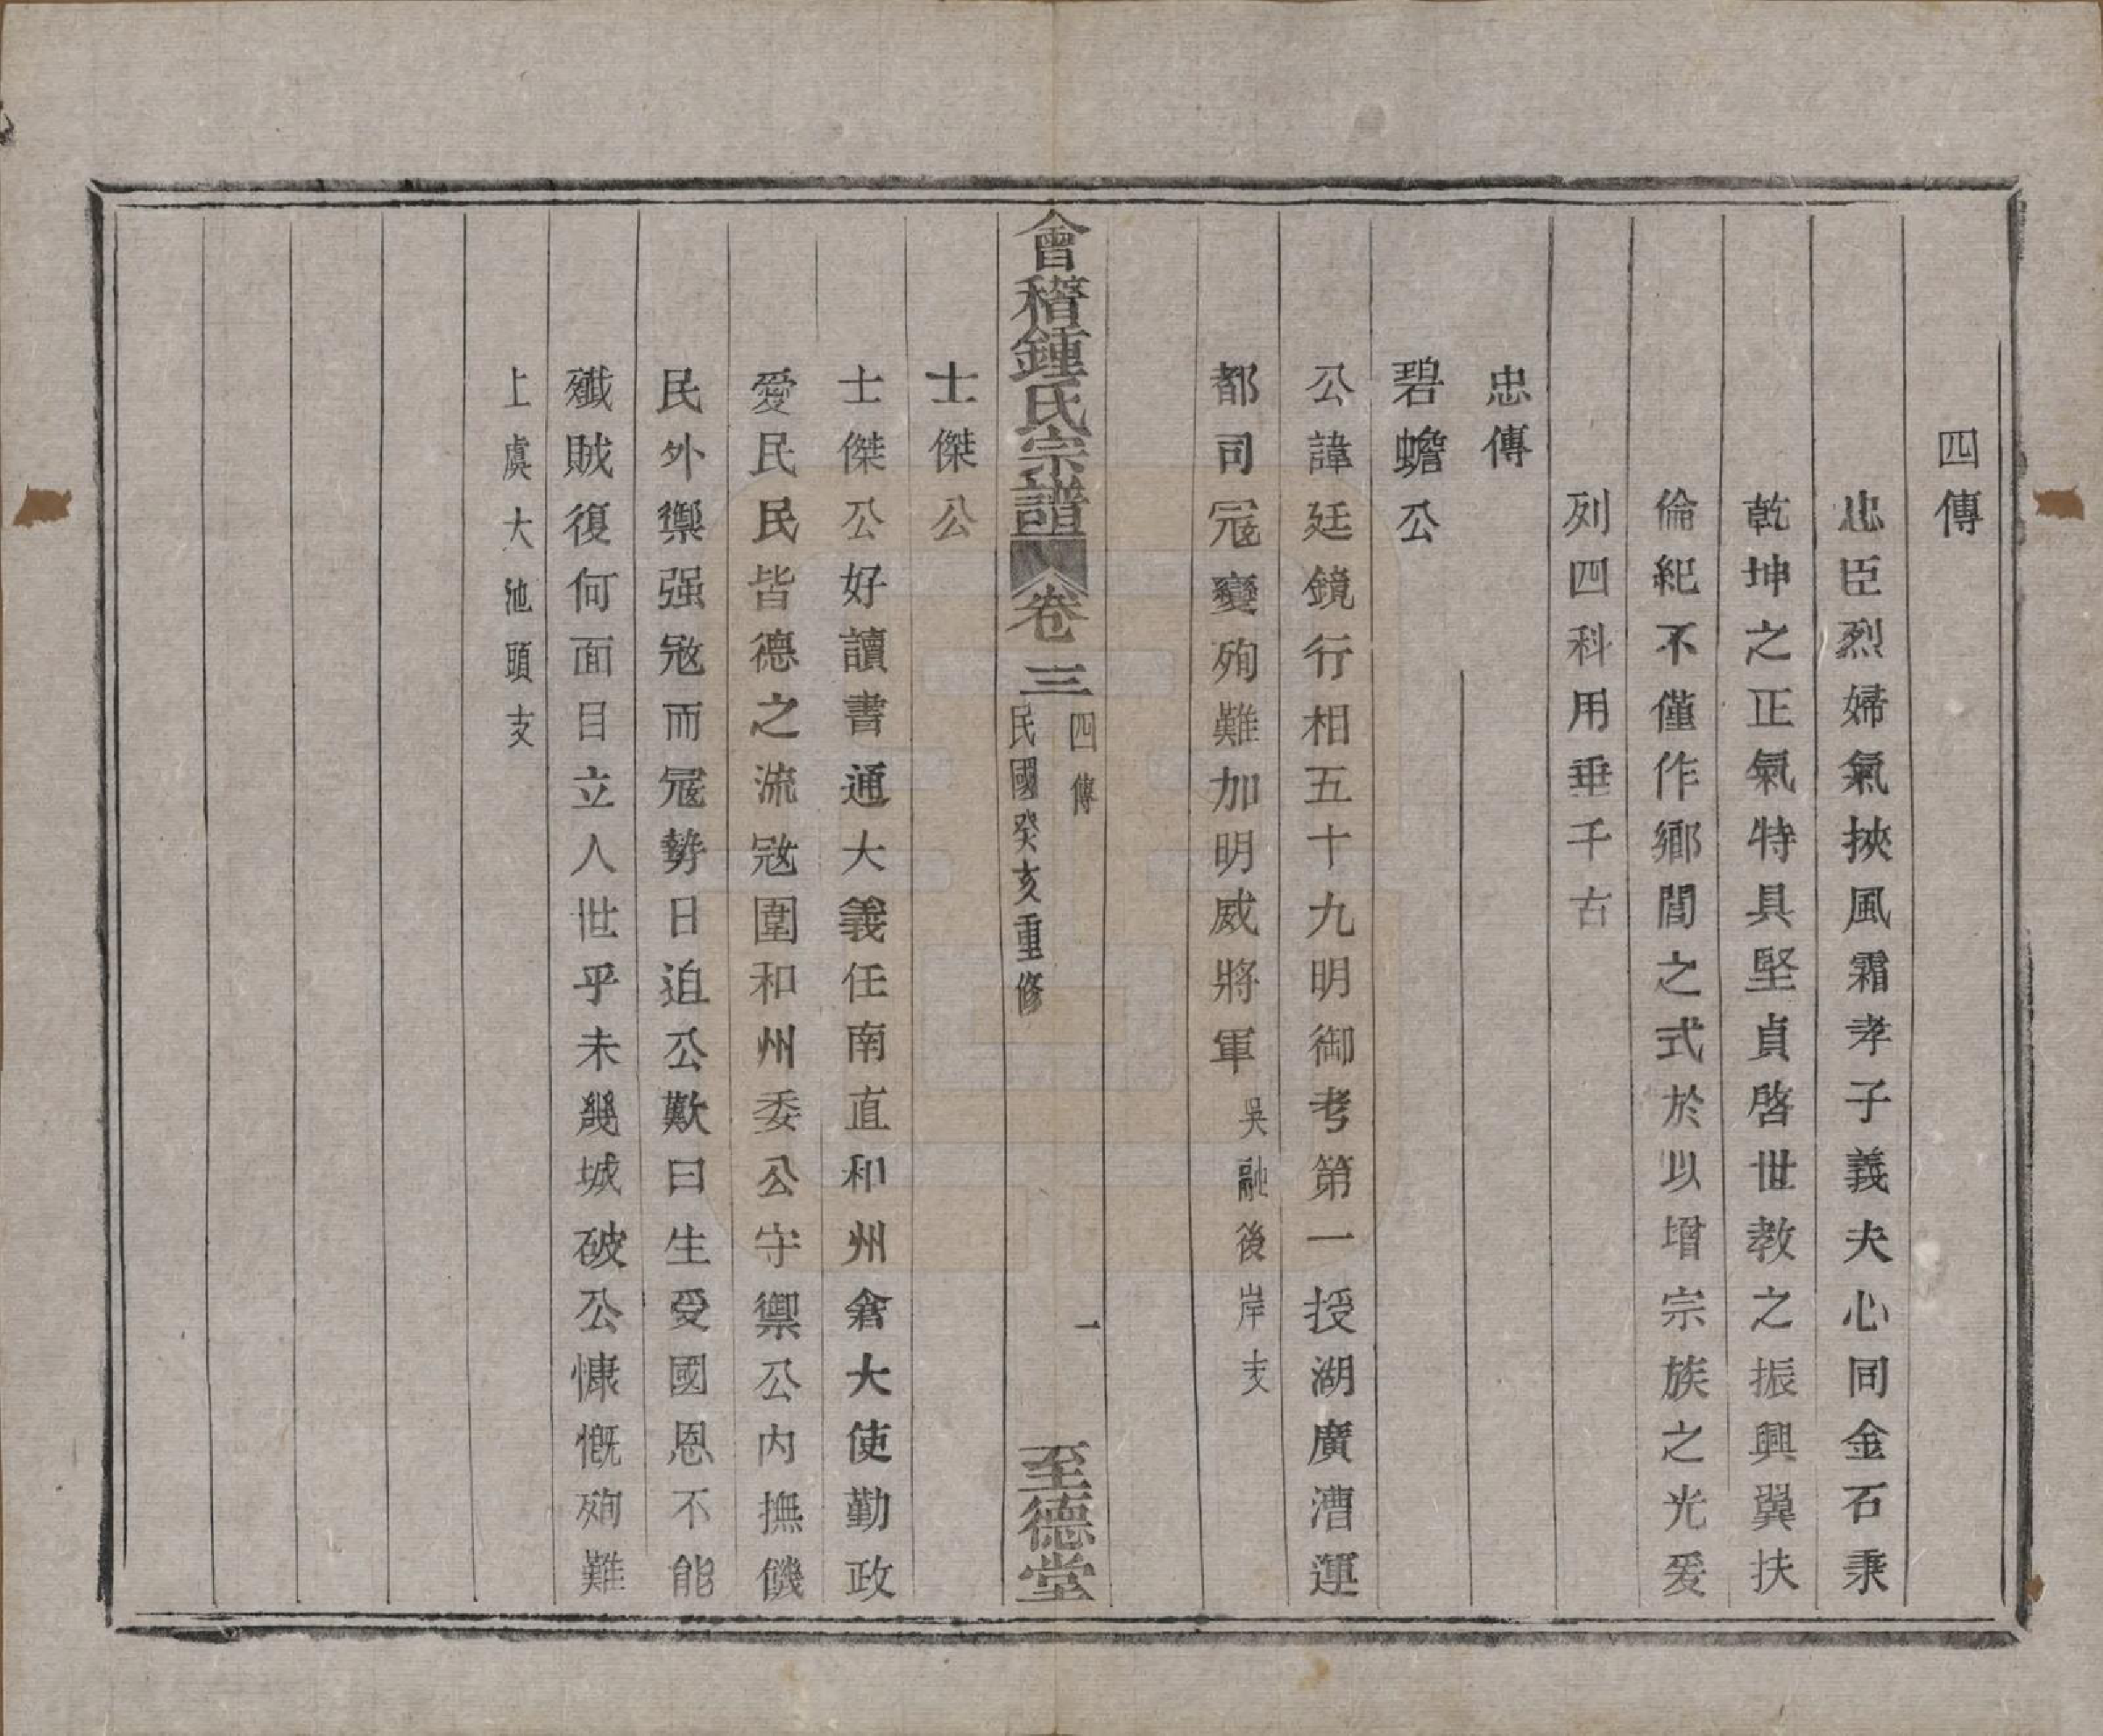 四傳
忠臣烈婦氣挾風霜孝子義夫心同金石秉
乾坤之正氣特具堅貞啓世教之振興翼扶
倫紀不僅作鄉閭之式於以增宗族之光爰
列四科用垂千古
忠傳
碧蟾公
公諱廷鏡行相五十九明御考第一授湖廣漕運
都司冦變殉難加明威將軍吳融後岸支
會稽鍾氏宗譜 卷三 四傳 民國癸亥重修 一 至德堂
士傑公
士傑公好讀書通大義任南直和州倉大使勤政
愛民民皆德之流宼圍和州委公守禦公内撫饑
民外禦强宼而冦勢日迫公歎曰生受國恩不能
殲賊復何面目立人世乎未幾城破公慷慨殉難
上虞大池頭支